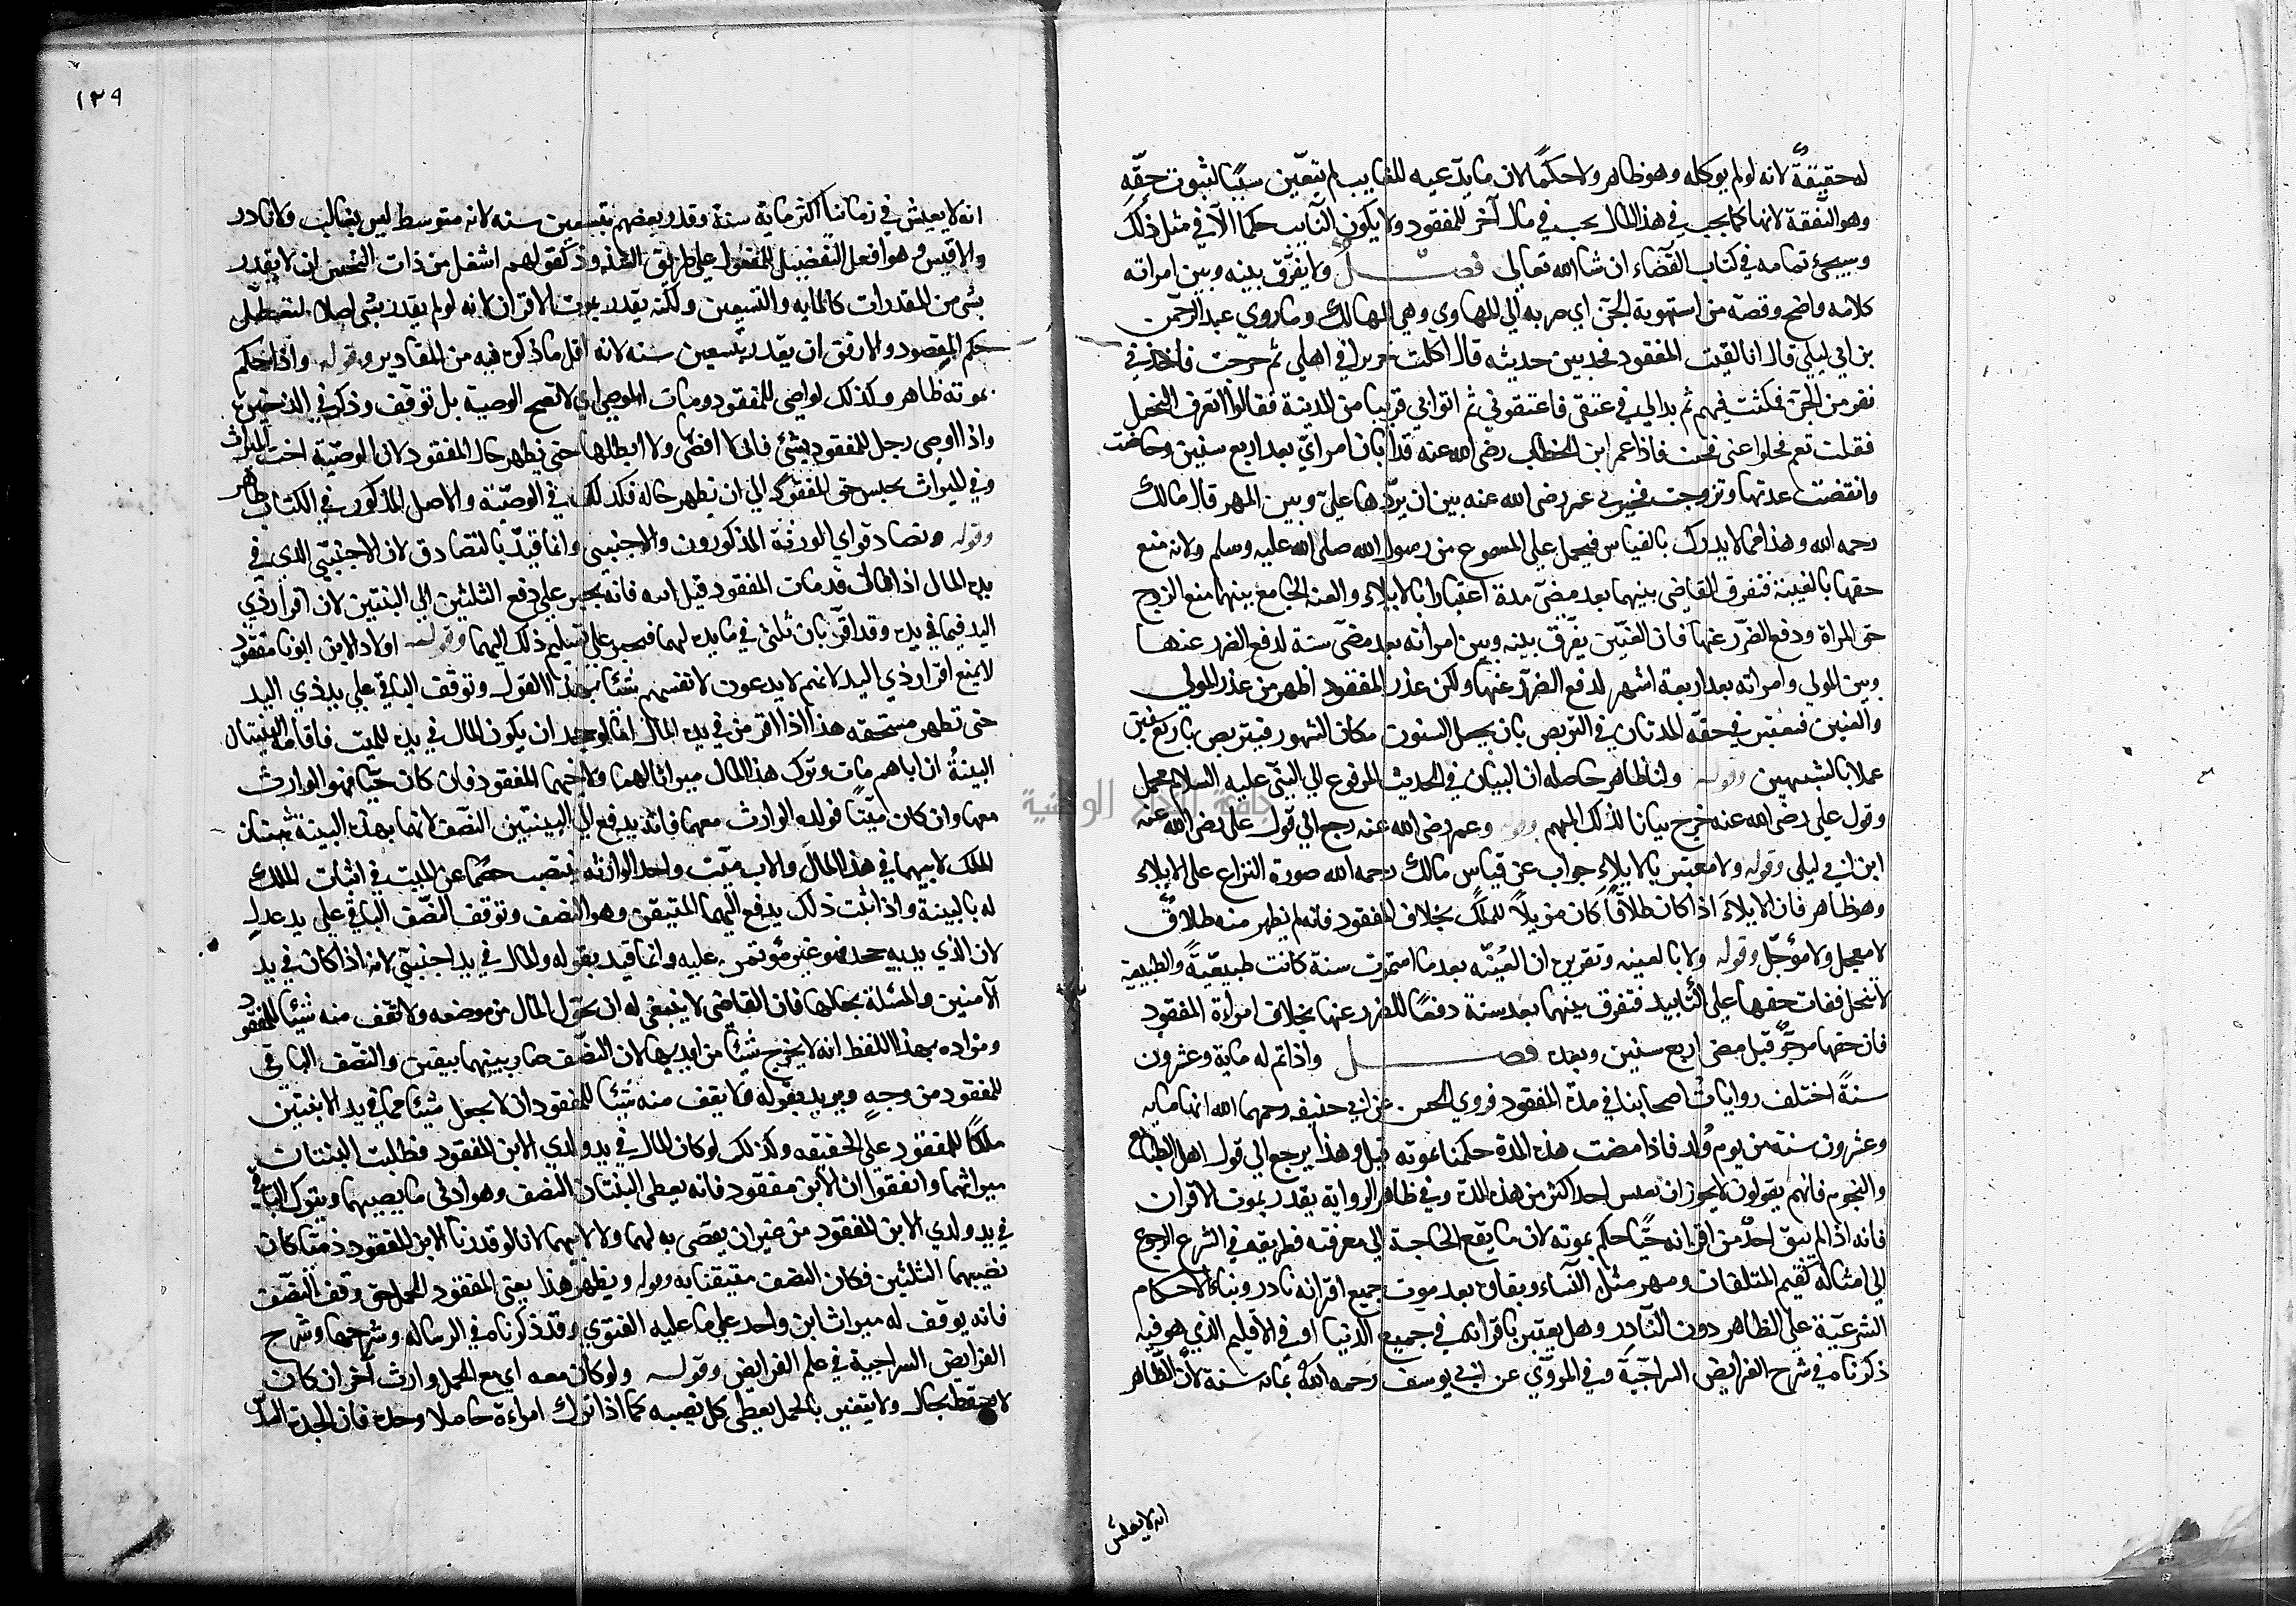 له حقيقة لانه لو لم يوكله وهو ظاهر ولا حكما لان ما يدعيه للغايب لم يتعين سببا لثبوت حقه
وهو النفقة لانها كما يجب في هذا المال يجب في مال آخر للمفقود ولا يكون النايب حكما الا في مثل ذلك
وسيجئ تمامه في كتاب القضاء ان شا الله تعالى فصل ولا يفرق بينه وبين امراته
كلامه واضح وقصة من استهوته الجن اي جربه الي المهاوي وهي المهالك وما روي عبد الرحمن
بن ابي ليلي قال انا لقيت المفقود فحدثني حديثه قال اكلت خزيرا في اهلي ثم خرجت فاخذني
نفر من الجن فمكثت فيهم ثم بدا لهم في عتقي فاعتقوني ثم اتوا بي قريبا من المدينة فقالوا اتعرف النخيل
فقلت نعم فخلوا عني فجئت فاذا عمر ابن الخطاب رضى الله عنه قد ابان امراتي بعد اربع سنين وحاضت
وانقضت عدتها وتزوجت فخيرني عمر رضى الله عنه بين ان يردها علي وبين المهر قال مالك
رحمه الله وهذا مما لا يدرك بالقياس فيحمل على المسموع من رسول الله صلى الله عليه وسلم ولانه منع
حقها بالغيبة فتفرق القاضي بينهما بعد مضي مدة اعتبارا بالايلاء والعنه الجامع بينهما منع الزوج
حق المراة ودفع الضرر عنها فان العنين يفرق بينه وبين امرأته بعد مضى سنة لدفع الضرر عنها
وبين المولي وامراته بعد اربعة اشهر لدفع الضرر عنها ولكن عذر المفقود اظهر من عذر المولي
والعنين فتعتبر في حقه المدتان في التربص بان يجعل السنون مكان الشهور فيتربص باربع سنين
عملا بالشبهين وقوله ولنا ظاهر حاصله ان البيان في الحديث المرفوع الي النبي عليه السلام مجمل
وقول على رضى الله عنه خرج بيانا لذلك المبهم وقوله وعمر رضى الله عنه رجع الي قول على رضى الله عنه
ابن ابي ليلى وقوله ولا معتبر بالايلاء جواب عن قياس مالك رحمه الله صورة النزاع على الايلاء
وهو ظاهر فان الايلاء اذا كان طلاقا كان مزيلا للملك بخلاف المفقود فانه لم يظهر منه طلاق
لا معجل ولا مؤجل وقوله ولا بالعنه وتقريره ان العنة بعد ما استمرت سنة كانت طبيعية والطبيعية
لا تنحل ففات حقها على التابيد فتفرق بينهما بعد سنة دفعا للضرر عنها بخلاف امراة المفقود
فان حقها مرجو قبل مضى اربع سنين وبعده فصل واذا تم له ماية وعشرون
سنة اختلف روايات اصحابنا في مدة المفقود فروي الحسن عن ابي حنيفه رحمهما الله انها مايه
وعشرون سنة من يوم ولد فاذا مضت هذه المدة حكمنا بموته قيل وهذا يرجع الي قول اهل الطبايع
والنجوم فانهم يقولون لا يجوز ان يعيش احد اكثر من هذه المدة وفي ظاهر الرواية يقدر بموت الاقران
فانه اذا لم يبق احد من اقرانه حيا حكم بموته لان ما يقع الحاجة الي معرفته فطريقه في الشرع الرجوع
الي امثاله كقيم المتلفات ومهر مثل النساء وبقاؤه بعد موت جميع اقرانه نادر وبناء الاحكام
الشرعية على الظاهر دون النادر وهل يعتبر باقرانه في جميع الدنيا او في الاقليم الذي هو فيه
ذكرناه في شرح الفرايض السراجية وفي المروي عن ابي يوسف رحمه الله بمائه سنة لان الظاهر
انه لا يعيش
١٣٩
انه لا يعيش في زماننا اكثر ماية سنة وقدر بعضهم بتسعين سنه لانه متوسط ليس بغالب ولا نادر
والاقيس وهو افعل التفضيل للمفعول على طريق الشذوذ كقولهم اشغل من ذات النحيين ان لا يقدر
بشي من المقدرات كالمايه والتسعين ولكنه يقدر بموت الاقران لانه لو لم يقدر بشي اصلا لتعطل
حكم المقصود والارفق ان يقدر بتسعين سنه لانه اقل ما ذكر فيه من المقادير وقوله واذا حكم
بموته ظاهر وكذلك لو اوصى للمفقود ومات الموصي اي لا تصح الوصية بل توقف وذكر في الذخيرة
واذا اوصى رجل للمفقود بشئ فاني لا اقضي بها ولا ابطلها حتى يظهر حال المفقود لان الوصية اخت الميراث
وفي الميراث يحبس حق المفقود الي ان يظهر حاله فكذلك في الوصية والاصل المذكور في الكتاب ظاهر
وقوله وتصادقوا اي الورثة المذكورون والاجنبي وانما قيد بالتصادق لان الاجنبي الذي في
يده المال اذا قال قد مات المفقود قبل ابيه فانه يجبر علي دفع الثلثين الي البنتين لان اقرار ذي
اليد فيما في يده وقد اقر بان ثلثي في ما يده لهما فيجبر على تسليم ذلك اليهما وقوله اولاد الابن ابونا مفقود
لا يمنع اقرار ذي اليد لانهم لا يدعون لانفسهم شيئا بهذا القول وتوقف الباقي علي يد ذي اليد
حتى تظهر مستحقه هذا اذا اقر من في يده المال اما لو جحد ان يكون المال في يده للميت فاقامت البنتان
البينة ان اباهم مات وترك هذا المال ميراثا لهما ولاخيهما المفقود فان كان حيا فهو الوارث
معهما وان كان ميتا فولده الوارث معهما فانه يدفع الي البنتين النصف لانهما بهذه البينة تثبتان
الملك لابيهما في هذا المال والاب ميت واحد الورثه ينتصب خصما عن الميت في اثبات الملك
له بالبينة واذا ثبت ذلك يدفع اليهما المتيقن وهو النصف وتوقف النصف الباقي علي يد عدل
لان الذي بيديه جحد فهو غير مؤتمن عليه وانما قيد بقوله والمال في يد اجنبي لانه اذا كان في يد
الابنتين والمسئلة بحالها فان القاضي لا ينبغي له ان يحول المال من موضعه ولا تقف منه شيئا للمفقود
ومراده بهذا اللفظ انه لا يخرج شيئا من ايديهما لان النصف صار بينهما بيقين والنصف الباقي
للمفقود من وجه ويريد بقوله ولا يقف منه شيئا للمفقود ان لا يجعل شيئا مما في يد الابنتين
ملكا للمفقود على الحقيقه وكذلك لو كان المال في يد ولدي الابن المفقود فطلبت البنتان
ميراثهما واتفقوا ان الابن مفقود فانه يعطى البنتان النصف وهو ادنى ما يصيبهما ويترك الباقي
في يد ولدي الابن المفقود من غير ان يقضى به لهما ولا لابيهما لانا لو قدرنا الابن المفقود ميتا كان
نصيبهما الثلثين فكان النصف متيقنا به وقوله ونظير هذا يعني المفقود الحمل حتى وقف النصف
فانه يوقف له ميراث ابن واحد علي ما عليه الفتوي وقد ذكرناه في الرساله وشرحها وشرح
الفرايض السراجية في علم الفرايض وقوله ولو كان معه اي مع الحمل وارث آخر ان كان
لا يسقط بحال ولا يتغير بالحمل يعطى كل نصيبه كما اذا ترك امراءة حاملا وجدة فان الجدة